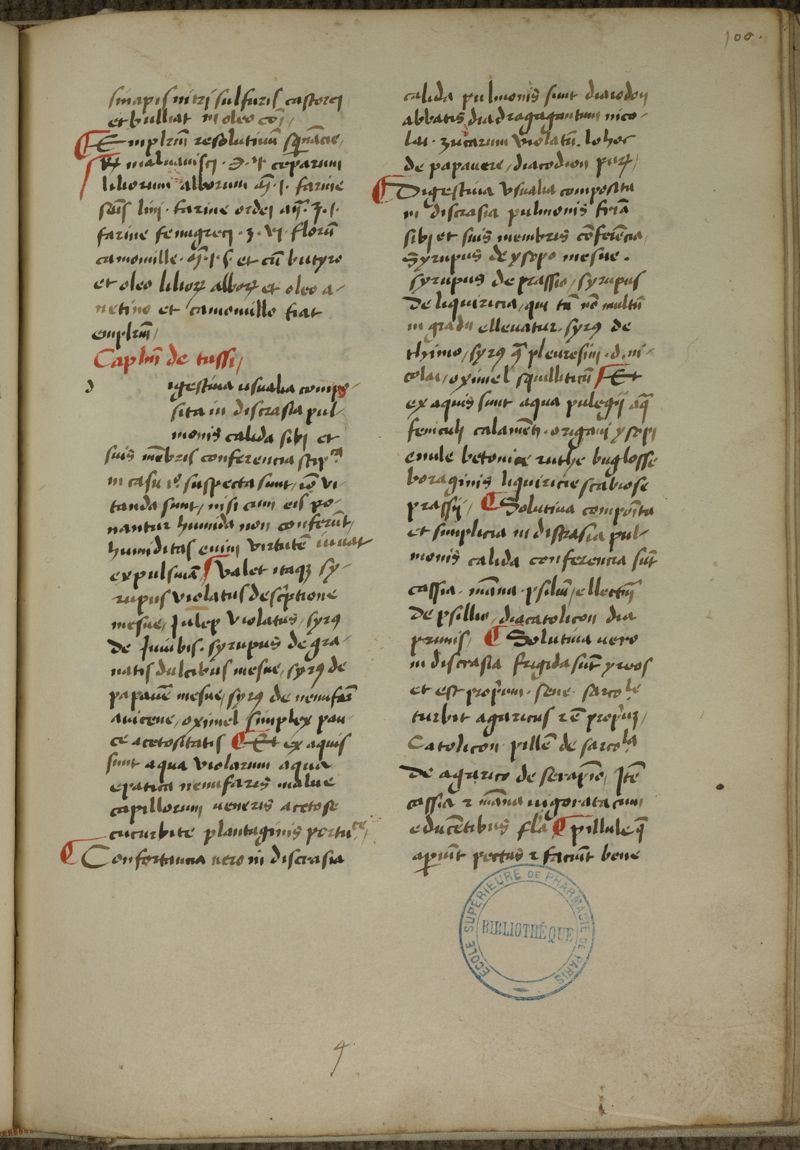 100.
sinapis nitri sulfuris castorei
et bulliat in oleo coi
Emplrm resolutivum squinacie
R malvavisci ceparum
liliorum alborum farine
sem lini farine ordei an
farine fenugreci . vi florum
camomille et cu butyro
et oleo lilior albor et oleo a-
netino et camomille fiat
emplrm
Caplm de tussi
digestiva usualia compo-
sita in discrasia pul-
monis calida sibi et
suis mebris conferencia
in casu suspecta sunt vi
tanda sunt, nisi cum eis po-
nantur humida non conferut,
humiditas enim virtute iuvat
expulsiva Valet itaq sy-
rupus violatus descptione
mesue, Julep violatus, syrq
de Jujubis. syrupus de gra-
natis dulcibus mesue, syrq de
papave mesue, syrq de nenufar
avicene, oximel simplex pau-
ce acetositatis Et ex aquis
sunt aqua violarum aqua
epatica nenufaris malve
capillorum veneris acetose
cucurbite plantaginis portu
Confortancia vero in discrasia
calida pulmonis sunt diarodon
abbatis diadragagantum nico-
lai. zucarum violatu. lohoc
de papavere, diacodion
Digestiva usualia composita
in discrasia pulmonis
sibi et suis membris coferecia
Syrupus de ysopo mesue.
syrupus de prassio, syrupus
de liquiricia, qui tn no multu
in gradu ellevatur. syrq de
thimo, syrq pleuresim . d. ni-
colai, oximel squilliticu Et
ex aquis sunt aqua pulegii aq
feniculi calameti. origani ysopi
enule betonice ruthe buglosse
boraginis liquiricie scabiose
prassii, Solutiva composita
et simplicia in distrasia pul-
monis calida conferencia sut
cassia. mana. psiliu ellectm
de psillio, diacatolicon dia
prunis, Solutiva vero
in discrasia frigida sut yreos
et est propriu. sene. sarcole
turbit agaricus
Catolicon. pille de sarcola
de agarico de serapio, Ite
cassia z mana vigorata cum
educetibus fla pillule q
aperiut pectus z faciut bene
ECOLE SUPÉRIEURE DE PHARMACIE DE PARIS
BIBLIOTHÉQUE